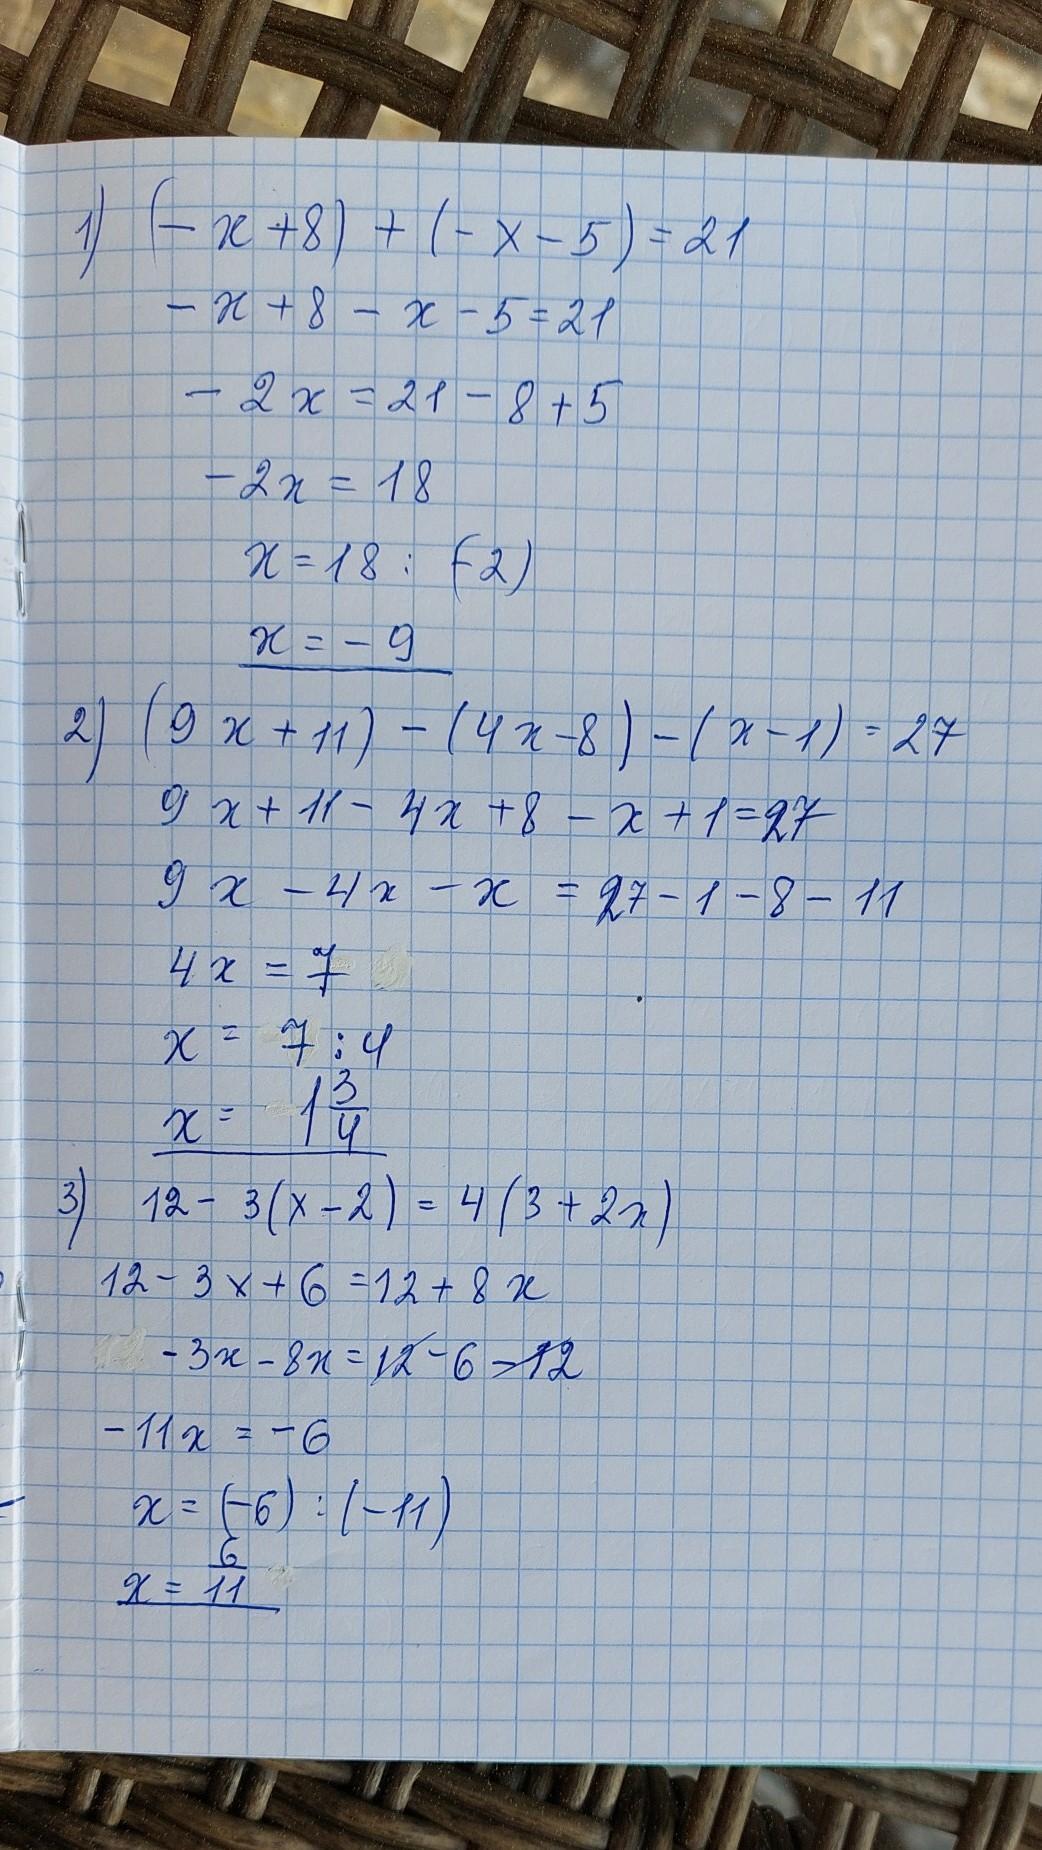 1) (- x + 8) + (- x - 5) = 21
- x + 8 - x - 5 = 21
- 2x = 21 - 8 + 5
- 2x = 18
x = 18 : (-2)
x = - 9
2) (9x + 11) - (4x - 8) - (x - 1) = 27
9x + 11 - 4x + 8 - x + 1 = 27
9x - 4x - x = 27 - 1 - 8 - 11
4x = 7
x = 7 : 4
x = 1 3/4
3) 12 - 3(x - 2) = 4(3 + 2x)
12 - 3x + 6 = 12 + 8x
- 3x - 8x = 12 - 6 - 12
- 11x = - 6
x = (-6) : (-11)
x = 6/11